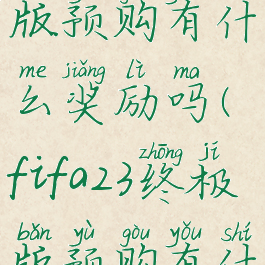 版预购有什
me jiǎng lì ma
么奖励吗(
zhōng jí
fifa23终极
bǎn yù gòu yǒu shí
版预购有什